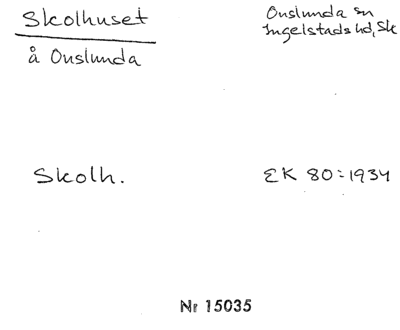 Skolhuset
å Onslunda
Onslunda sn
Ingelstads hd, Sk
Skolh.
EK 80:1934
Nr 15035